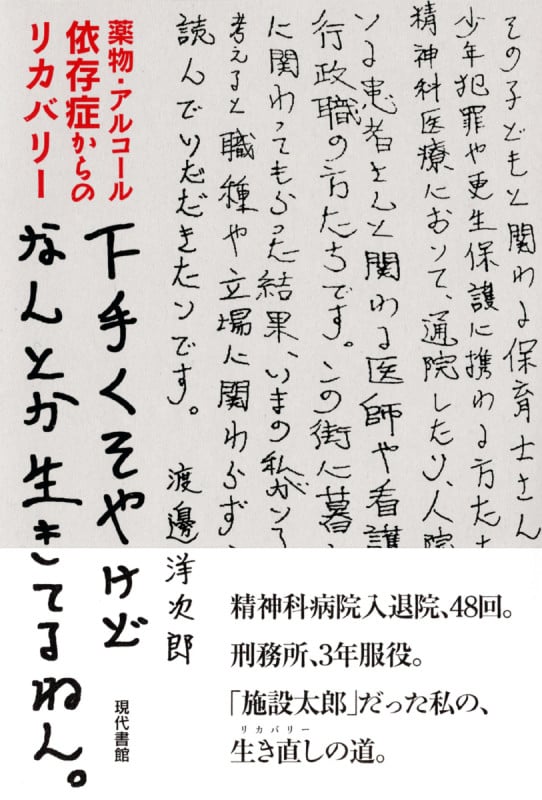 その子どもと関わる保育士さん
少年犯罪や更生保護に携わる方た
精神科医療において、通院したり、入院
いる患者さんと関わる医師や看護
行政職の方たちです。この街に暮
に関わってもらった結果、いまの私がいる
考えると職種や立場に関わらず、
読んでいただきたいです。 渡邊洋次郎
薬物・アルコール
依存症からの
リカバリー
下手くそやけど
なんとか生きてるねん。
現代書館
精神科病院入退院、48回。
刑務所、3年服役。
「施設太郎」だった私の、
リカバリー
生き直しの道。